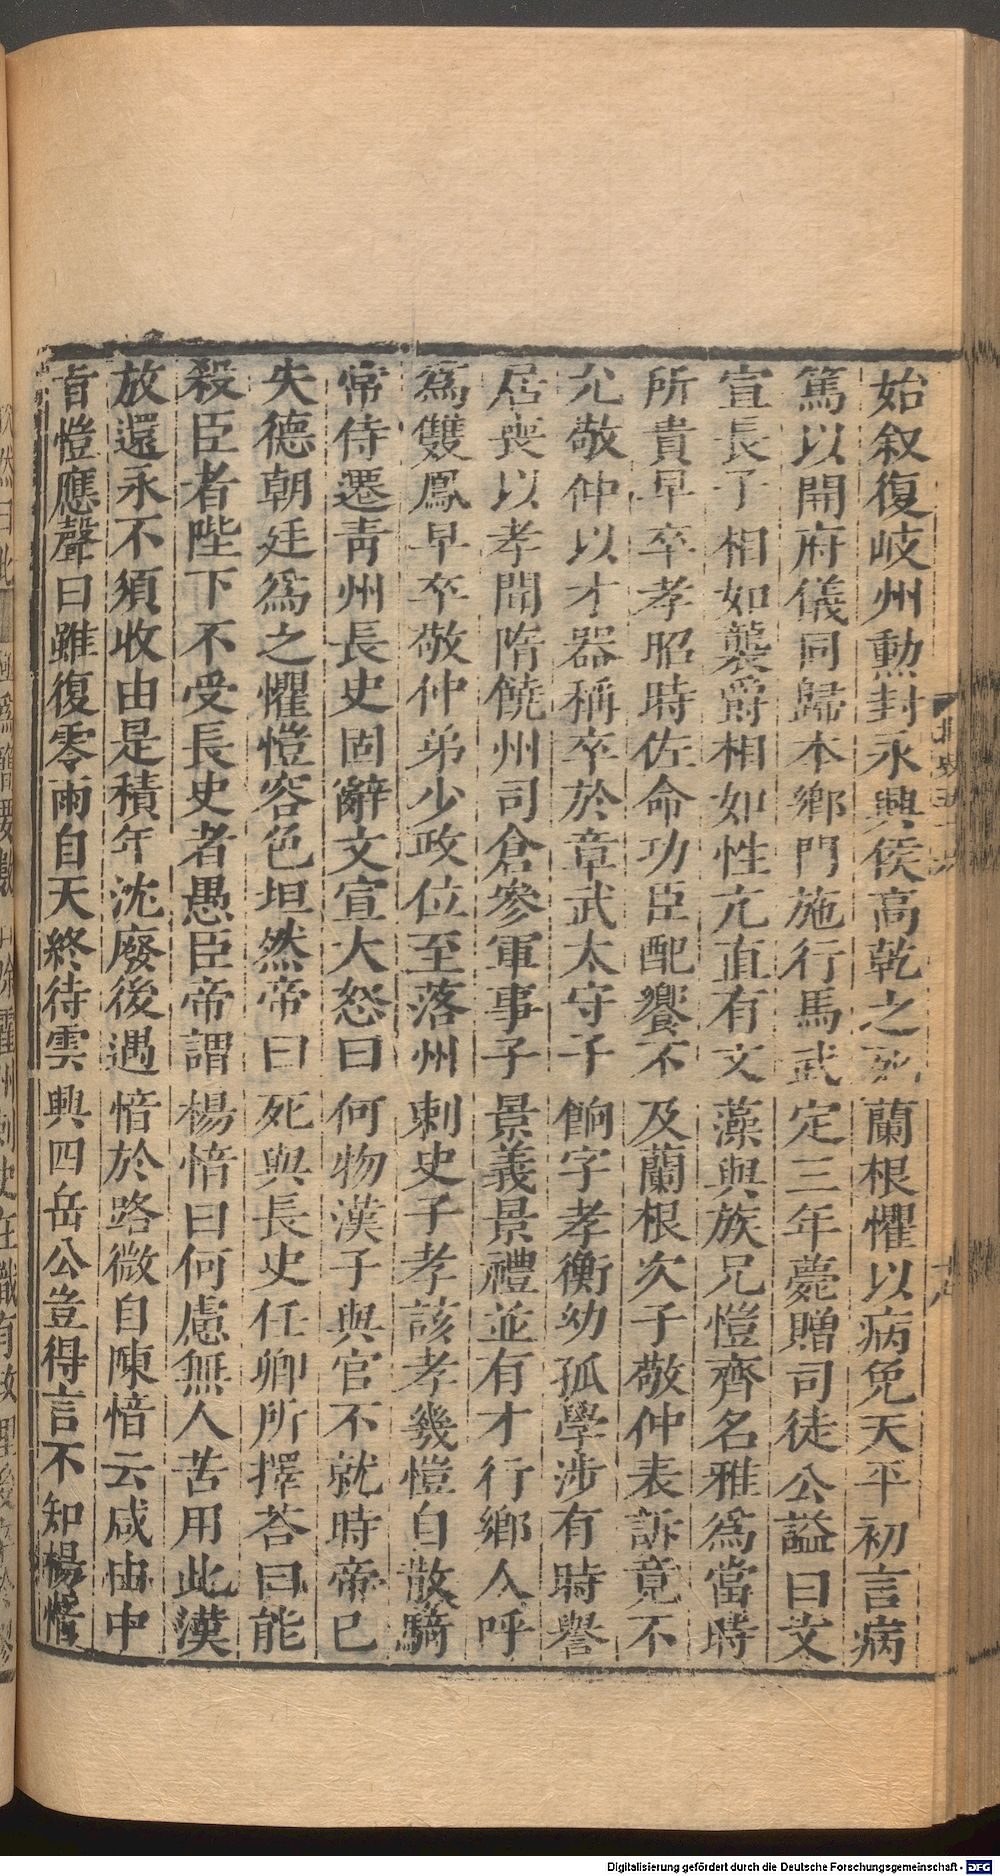 始叙復岐州勳封永興侯高乾之死蘭根懼以病免天平初言病
篤以開府儀同歸本鄉門施行馬武定三年薨贈司徒公謚曰文
宣長子相如襲爵相如性亢直有文藻與族兄愷齊名雅為當時
所貴早卒孝昭時佐命功臣配饗不及蘭根次子敬仲表訴竟不
允敬仲以才器稱卒於章武太守子餉字孝衡幼孤學涉有時譽
居喪以孝聞隋饒州司倉參軍事子景義景禮並有才行鄉人呼
為雙鳳早卒敬仲弟少政位至落州刺史子孝該孝幾愷自散騎
常侍遷青州長史固辭文宣大怒曰何物漢子與官不就時帝已
失德朝廷為之懼愷容色坦然帝曰死與長史任卿所擇荅曰能
殺臣者陛下不受長史者愚臣帝謂楊愔曰何慮無人苦用此漢
放還永不須收由是積年沈廢後遇愔於路微自陳愔云咸由中
旨愷應聲曰雖復零雨自天終待雲興四岳公豈得言不知楊愔
北史五十六
十八
Digitalisierung gefördert durch die Deutsche Forschungsgemeinschaft - DFG